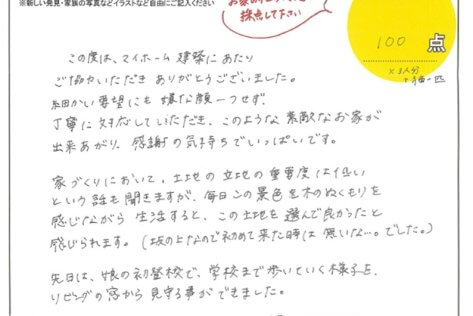 ※新しい発見・家族の写真などイラストなど自由にご記入ください
採点して下さい
100 点
×3人分
+猫一匹
この度は、マイホーム建築にあたり
ご協力いただき ありがとうございました。
細かい要望にも 嫌な顔一つせず、
丁寧に対応していただき、このような素敵なお家が
出来あがり、感謝の気持ちでいっぱいです。
家づくりにおいて、土地の立地の重要度は低い
という話も聞きますが、毎日この景色を木のぬくもりを
感じながら 生活すると、この土地を選んで良かったと
感じられます。(坂の上なので初めて来た時は 無いな…。でした。)
先日は、娘の初登校で、学校まで歩いていく様子を、
リビングの窓から見守る事ができました。